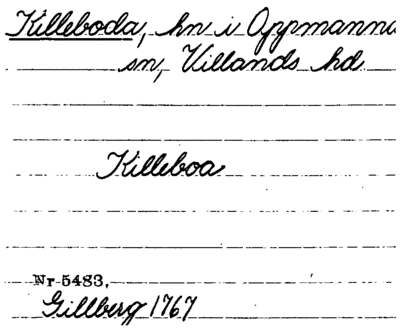 Killeboda, hn i Oppmanna
sn, Villands hd
Killeboa
Nr 5483.
Gillberg 1767